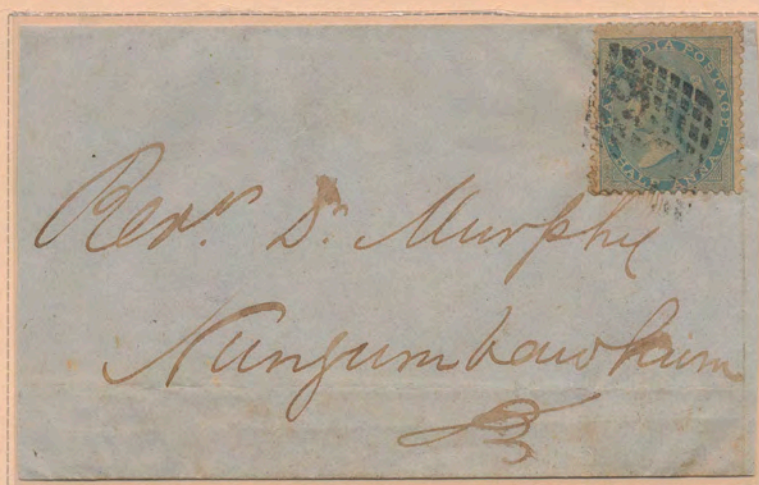 INDIA POSTAGE
HALF ANNA
Revd. Dr. Murphy
Nungumbawkum